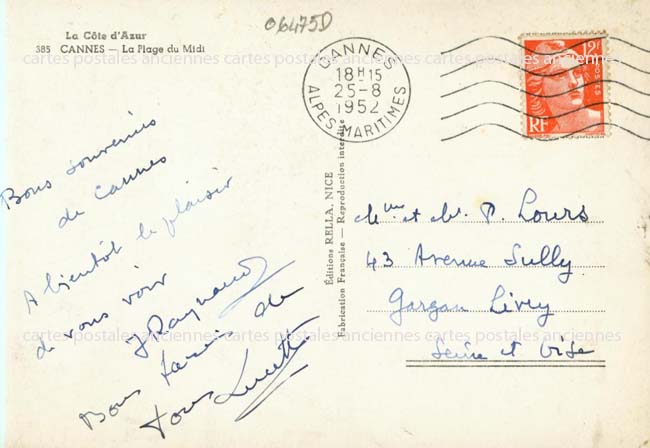 06475D
La Côte d'Azur
385 CANNES — La Plage du Midi
CANNES
18H15
25-8
1952
ALPES-MARITIMES
12F
POSTES
RF
Bons souvenirs
de Cannes
A bientôt le plaisir
de vous voir
J Raynaud
Bons de
tous Lucette
Éditions RELLA, NICE
Fabrication Française — Reproduction interdite
Mme et Mr. P. Lours
43 Avenue Sully
Gargan Livry
Seine et Oise
cartes postales anciennes cartes postales anciennes cartes postales anciennes
cartes postales anciennes cartes postales anciennes cartes postales anciennes